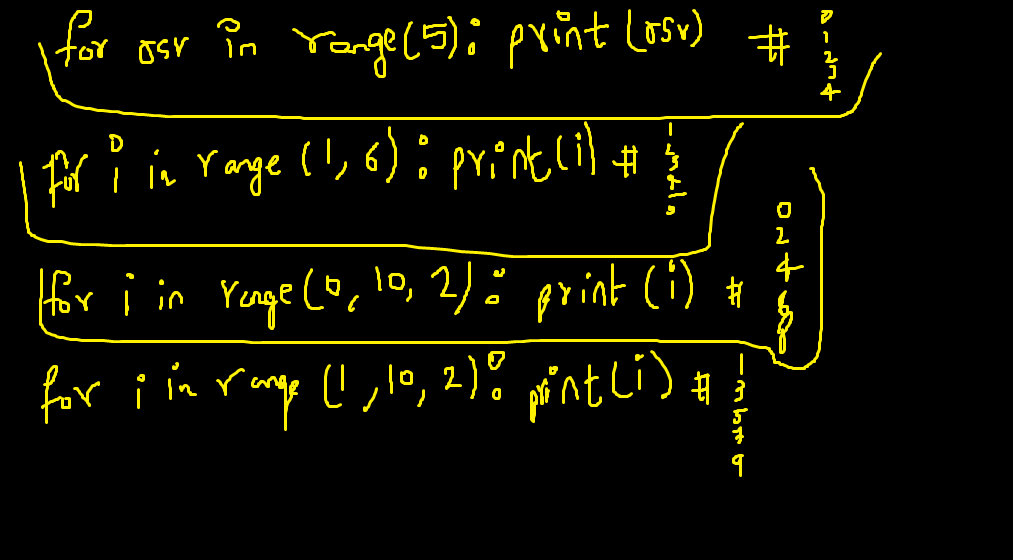 for osv in range(5): print(osv) # 0 1 2 3 4
for i in range (1, 6): print(i) # 1 2 3 4 5
for i in range(0, 10, 2): print (i) # 0 2 4 6 8
for i in range (1, 10, 2): print(i) # 1 3 5 7 9